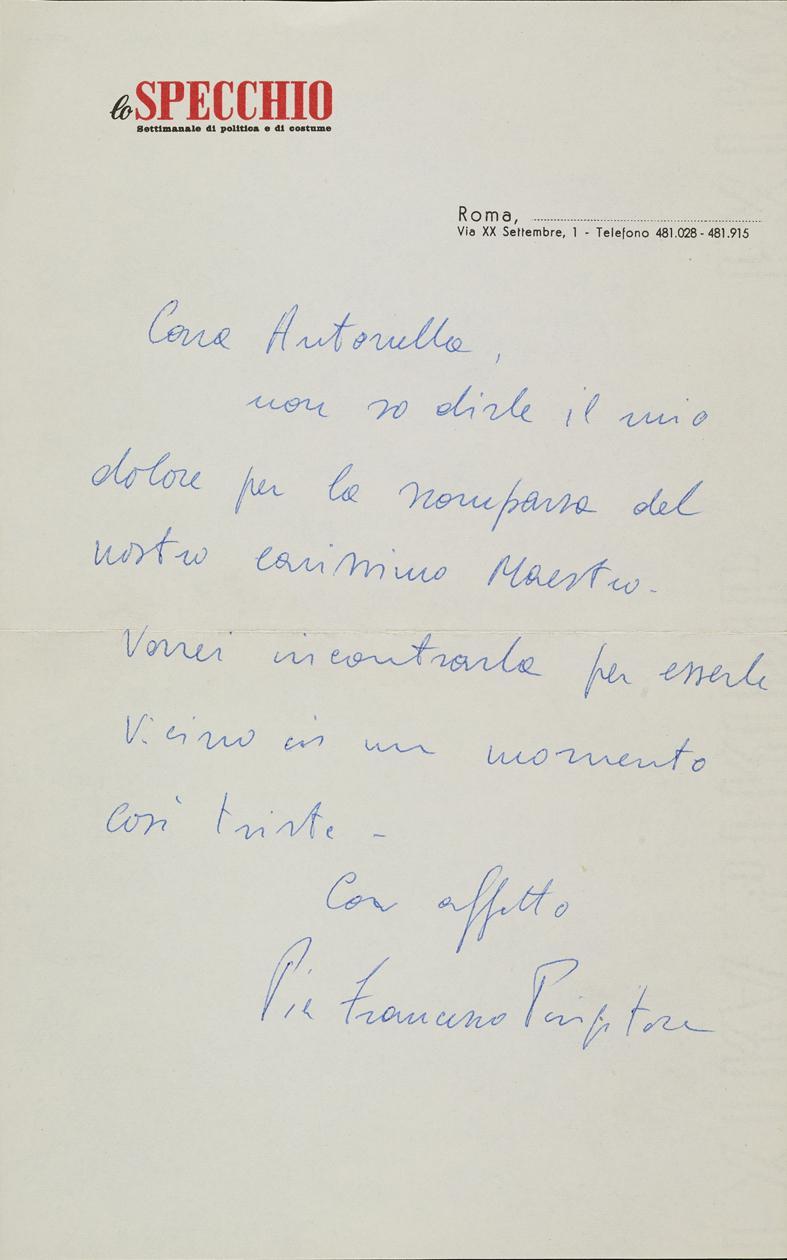 lo SPECCHIO
Settimanale di politica e di costume
Roma, ........................................
Via XX Settembre, 1 - Telefono 481.028 - 481.915
Cara Antonella,
non so dirle il mio
dolore per la scomparsa del
nostro carissimo Maestro.
Vorrei incontrarla per esserle
vicino in un momento
così triste -
Con affetto
Pier Francesco Pingitore